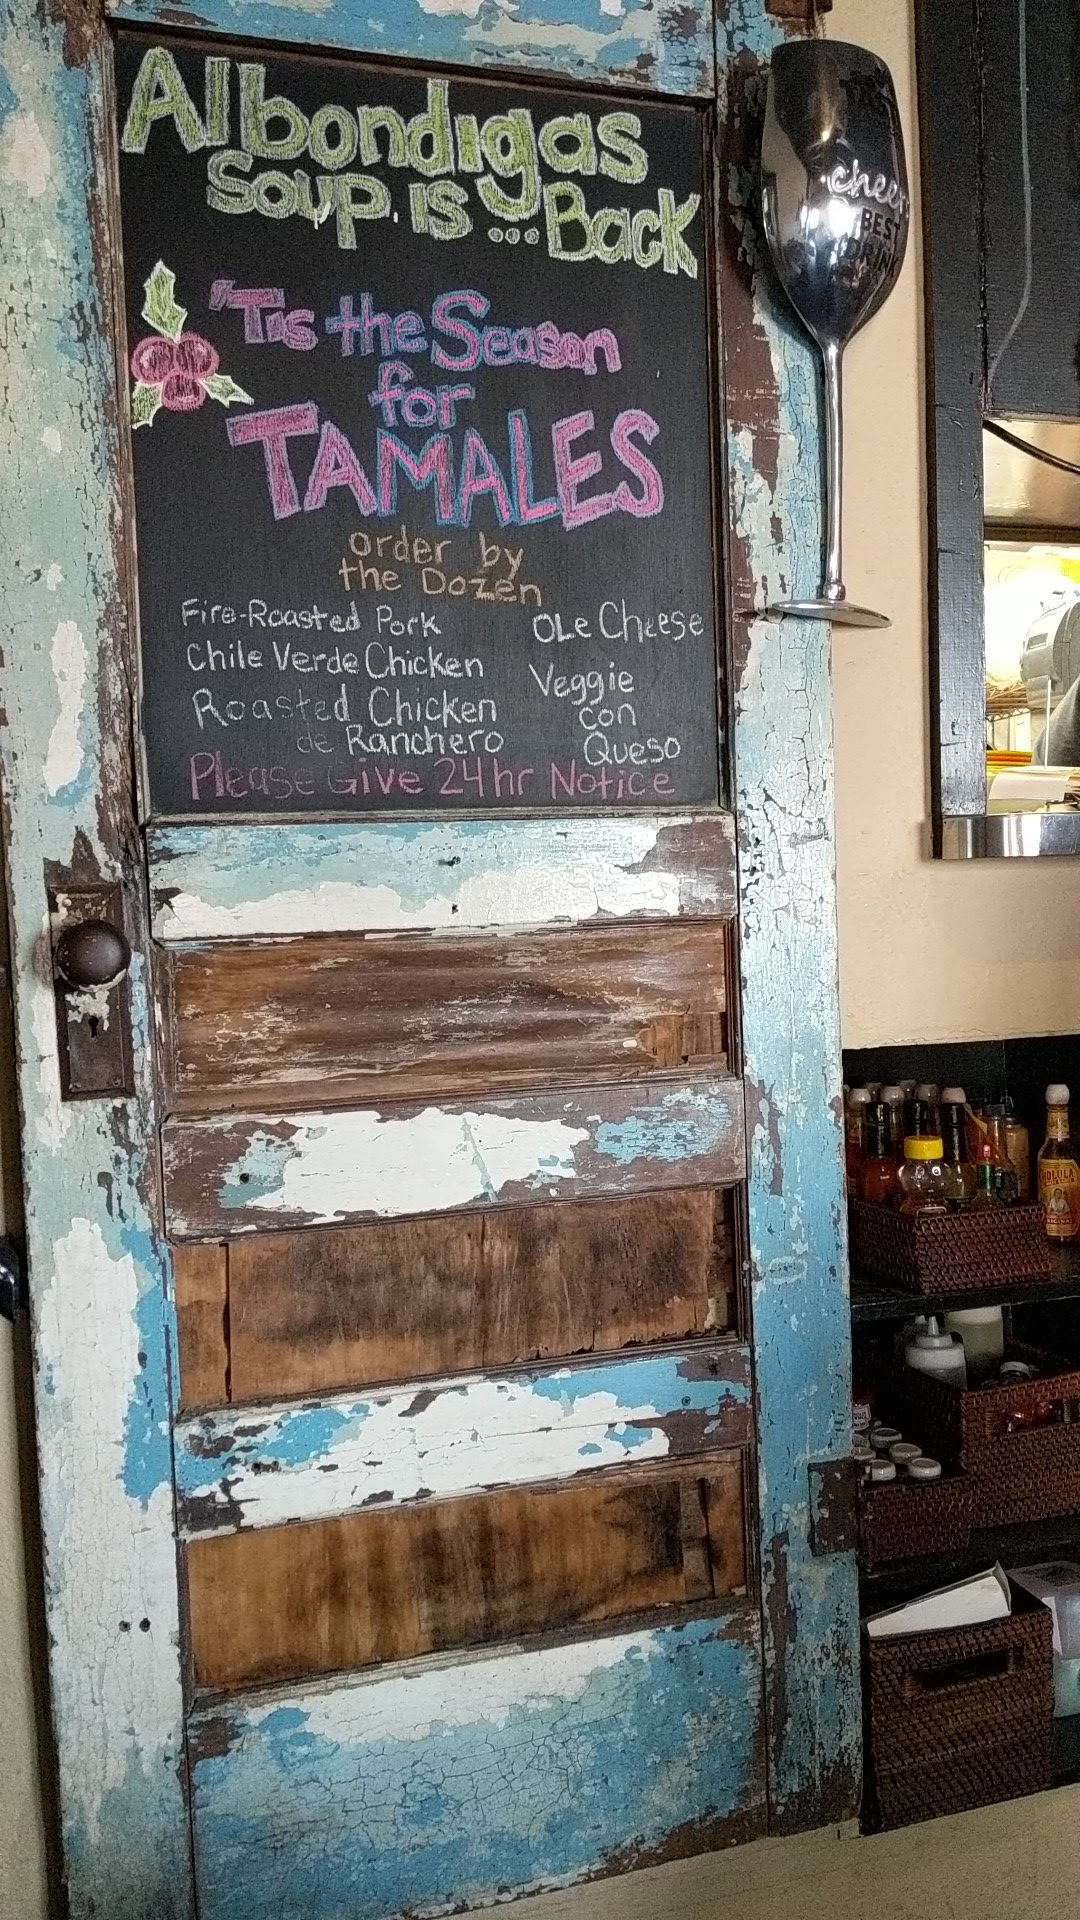 Albondigas
Soup is ... Back
"Tis the Season
for
TAMALES
order by
the Dozen
Fire-Roasted Pork
Chile Verde Chicken
Roasted Chicken
de Ranchero
OLe Cheese
Veggie
con
Queso
Please Give 24hr Notice
BEST
DRINK